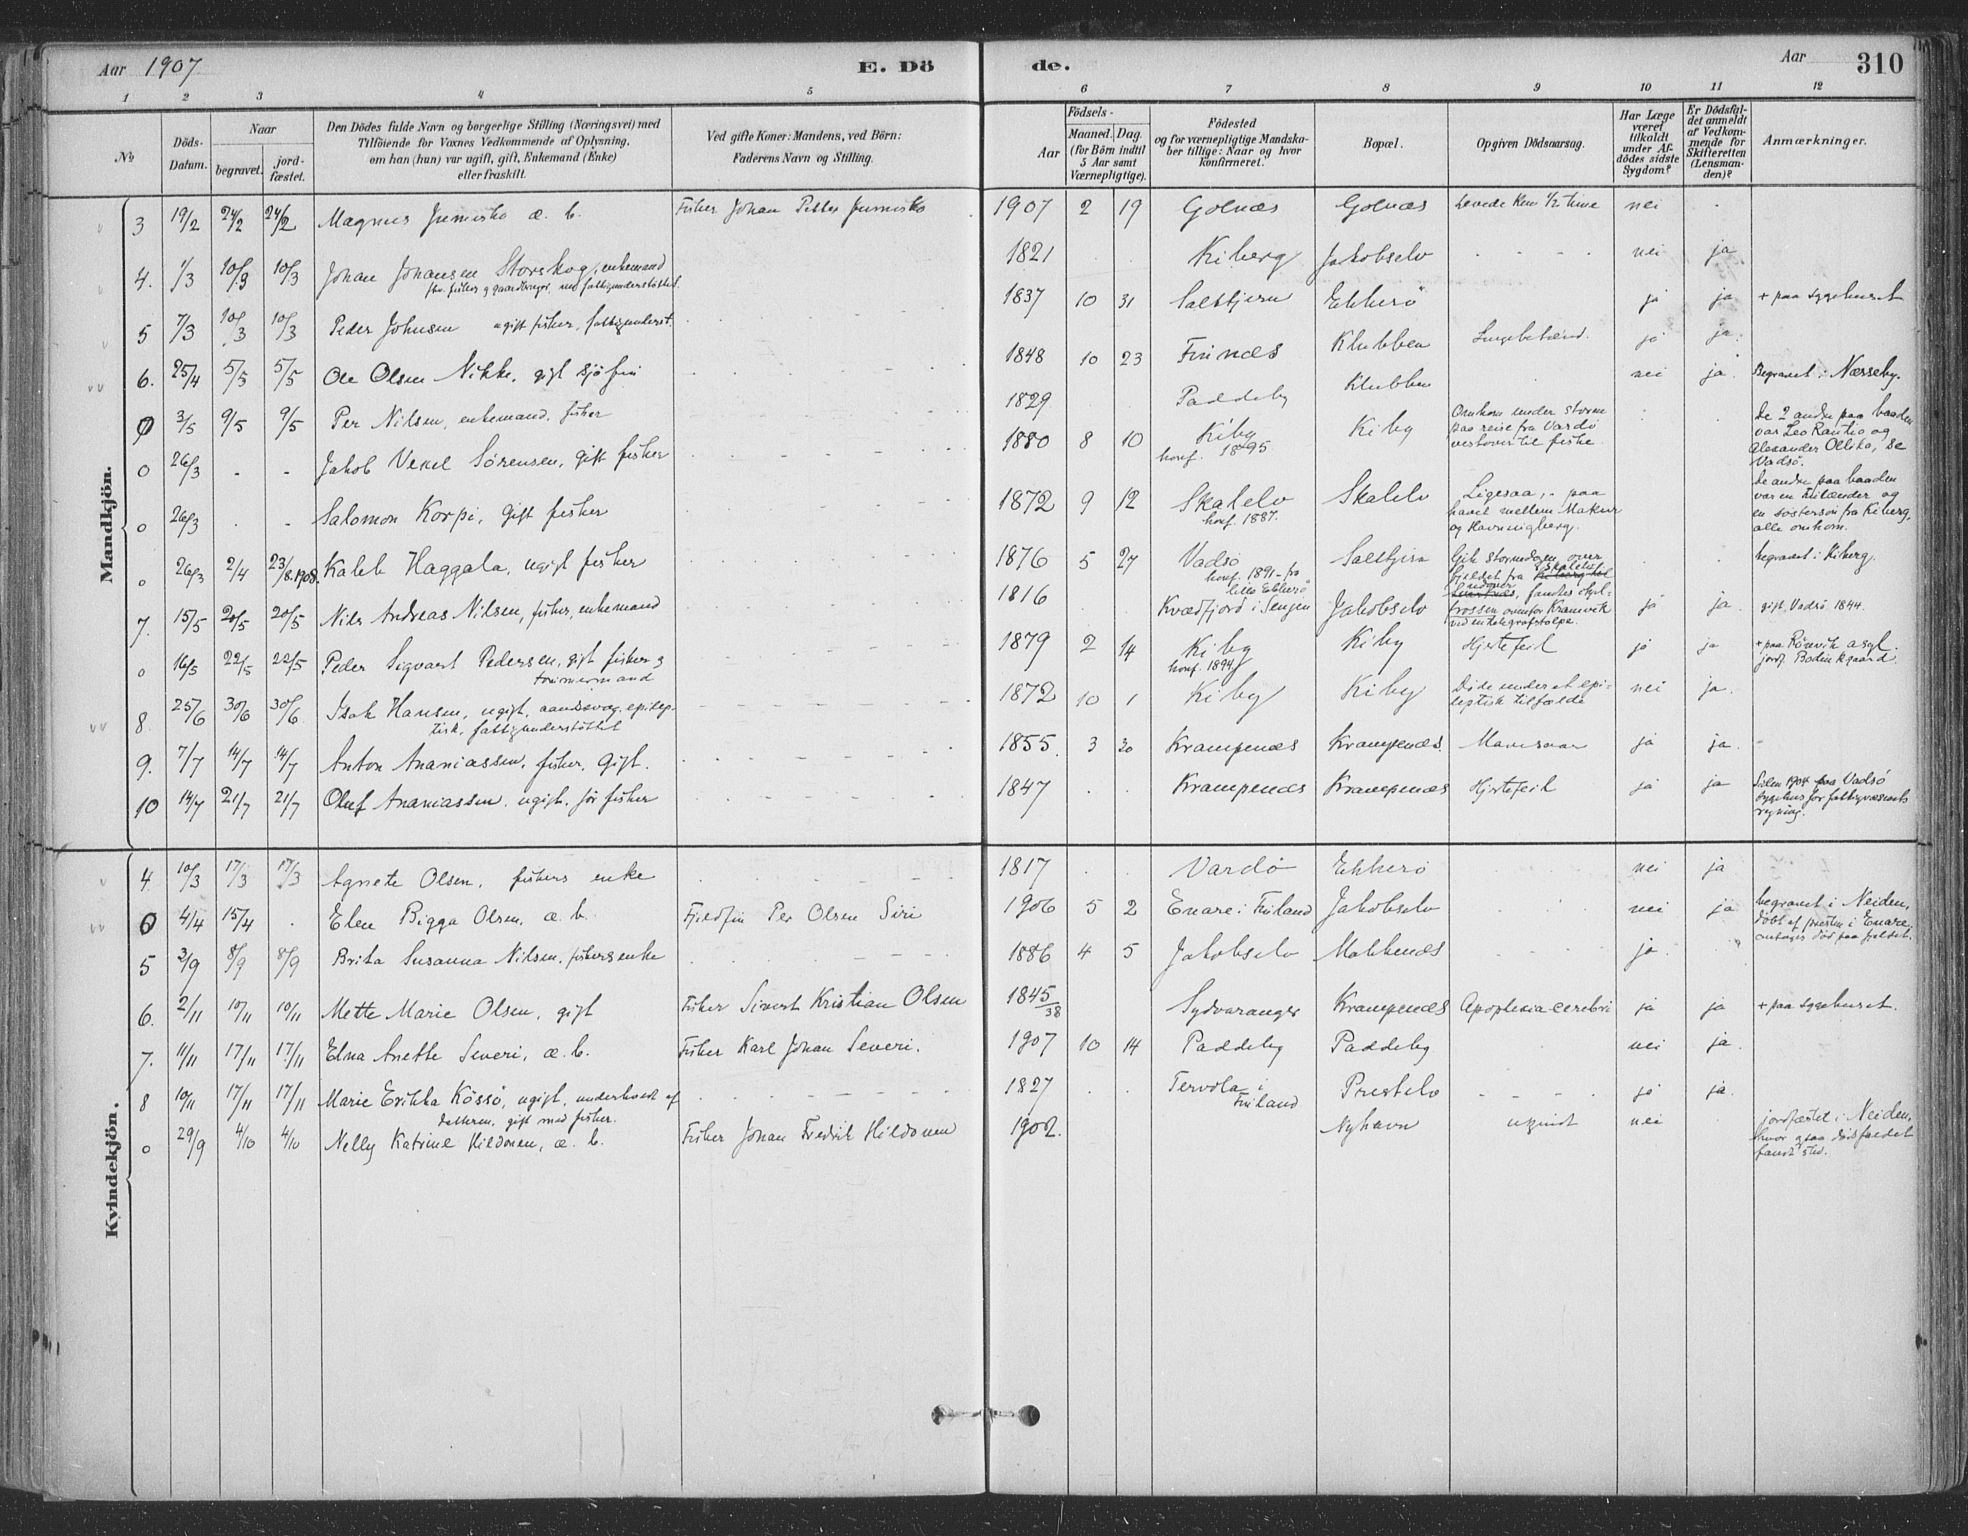 Aar 1907 E. Dö de. Aar 310
1 2 3 4 5 6 7 8 9 10 11 12
No
Döds-Datum.
Naar
begravet.
jord-fæstet.
Den Dödes fulde Navn og borgerlige Stilling (Næringsvei) med
Tilföiende for Voxnes Vedkommende af Oplysning,
om han (hun) var ugift, gift, Enkemand (Enke)
eller fraskilt.
Ved gifte Koner: Mandens, ved Börn:
Faderens Navn og Stilling.
Födsels-
Aar
Maaned. Dag.
(for Börn indtil
5 Aar samt
Værnepligtige).
Födested
og for værnepligtige Mandska-
ber tillige: Naar og hvor
konfirmeret.
Bopæl.
Opgiven Dödsaarsag.
Har Læge
været
tilkaldt
under Af-
dödes sidste
Sygdom?
Er Dödsfal-
det anmeldt
af Vedkom-
mende for
Skifteretten
(Lensman-
den)?
Anmærkninger.
Mandkjön.
3 19/2 24/2 24/2 Magnus Junisko æ. b. Fisker Johan Petter Junisko 1907 2 19 Golnæs Golnæs Levede kun 1/2 time nei
4. 1/3 10/3 10/3 Johan Johansen Storskog, enkemand 1821 Kiberg Jakobselv nei ja
fhv. fisker og gaardbruger, nu fattigunderstøttet.
5 7/3 10/3 10/3 Peder Johnsen ugift fisker, fattigunderst. 1837 10 31 Saltjern Ekkerö ja ja + paa sygehuset
6. 25/4 5/5 5/5 Ole Olsen Nikke, gift sjöfin 1848 10 23 Finnæs Klubben Lungebetænd. ja ja.
7 3/5 9/5 9/5 Per Nilsen, enkemand, fisker 1829 Paddeby Klubben nei ja Begravet i Næsseby.
0 26/3 - - Jakob Vexel Sörensen, gift fisker 1880 8 10 Kiby Kiby
konf. 1895
Omkom under storm
paa reise fra Vardö
vestover til fiske.
De 2 andre paa baaden
var Leo Rantio og
Alexander Ollila, se
Vadsö.
0 26/3 - Salomon Korpi, gift fisker 1872 9 12 Skalelv Skalelv
konf. 1887.
Ligesaa, - paa
havet mellem Makur
og Havningberg.
De andre paa baaden
var en finlænder og
en söstersön fra Kiberg,
alle omkom.
0 26/3 2/4 23/8.1908. Kaleb Haggala, ugift fisker 1876 5 27 Vadsö Saltjern
konf. 1891 - fra
lille Ekkerö
Gik stormdagen over
fjeldet fra Skalelv
fandtes
ovenfor Kramvik
ved en telegrafstolpe.
begravet i Kiberg.
7. 15/5 20/5 20/5 Nils Andreas Nilsen, fisker, enkemand 1816 Kvædfjord i Senjen Jakobselv ja ja. gift, Vadsö 1844.
0 16/5 22/5 22/5 Peder Sigvart Pedersen, gift fisker og 1879 2 14 Kiby Kiby Hjertefeil ja ja
tömmermand
konf. 1894
+ paa Rönvik asyl.
jordf. Bodin kgaard.
8. 25/6 30/6 30/6 Isak Hansen, ugift, aandssvag, epilep- 1872 10 1 Kiby Kiby
tisk, fattigunderstöttet
Döde under et epi-
leptisk tilfælde nei ja.
9. 7/7 14/7 14/7 Anton Ananiassen, fisker, gift. 1855. 3 20 Krampenæs Krampenæs Mavesaar ja ja.
10 14/7 21/7 21/7 Oluf Ananiassen, ugift, för fisker 1847 Krampenæs Krampenæs Hjertefeil ja ja
Siden 1904 paa Vadsö
sygehus for fattigvæsenets
regning.
Kvindekjön.
4. 10/3 17/3 17/3 Agnete Olsen, fiskers enke 1817 Vardö Ekkerö nei ja
0 4/4 15/4 . Elen Bigga Olsen, æ. b. Fjeldfin Per Olsen Siri 1906 5 2 Enare i Finland Jakobselv nei ja
begravet i Neiden,
döbt af presten i Enare,
död paa fjeldet.
5 3/9 8/9 8/9 Brita Susanna Nilsen, fiskers enke 1886 4 5 Jakobselv Makkenæs ja.
6. 2/11 10/11 10/11 Mette Marie Olsen, gift Fisker Sivert Kristian Olsen 1845/38 Sydvaranger Krampenæs Apoplexia cerebri ja ja + paa sygehuset.
7. 11/11 17/11 17/11 Elna Anette Severi, æ. b. Fisker Karl Johan Severi. 1907 10 14 Paddeby Paddeby nei ja.
8 10/11 17/11 17/11 Marie Erikka Kössö, ugift, underholdt af 1827 Tervola i Finland Prestelv ja ja.
datteren, gift med fisker.
0 29/9 4/10 4/10 Nelly Katrine Hildonen, æ. b. Fisker Johan Fredrik Hildonen 1902. Nyhavn uvist nei
jordfæstet i Neiden,
hvor ogsaa dödsfaldet
fandt sted.